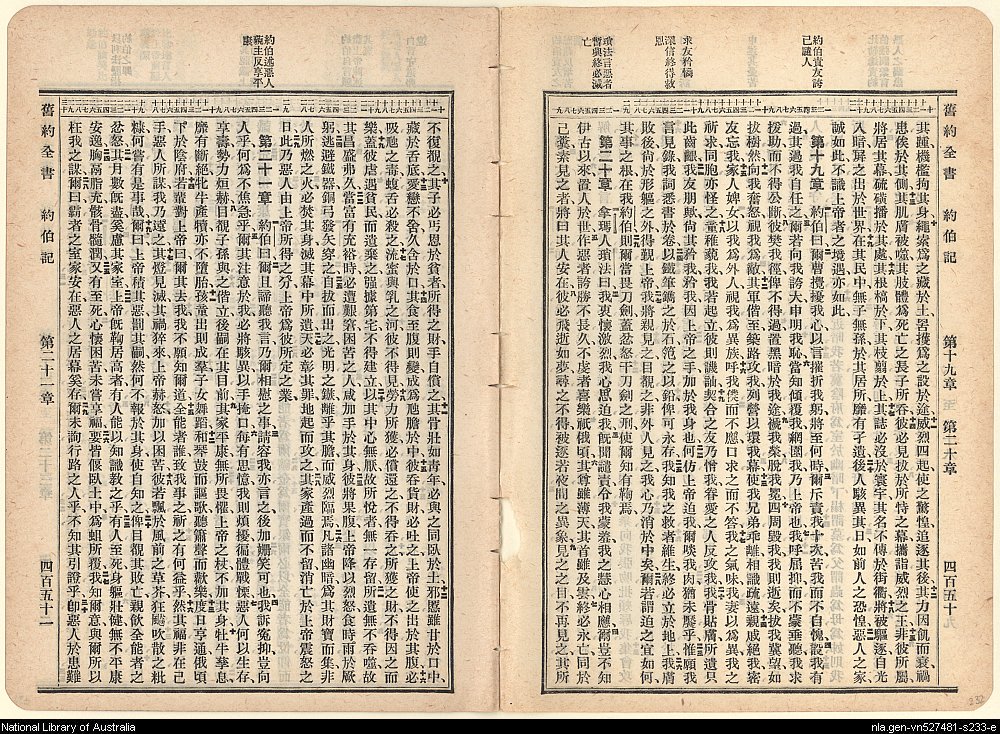 約伯責友謗
已譴人
求友矜憐
深信終得救
恩
瑣法言惡者
暫興終必滅
亡
舊約全書 約伯記 第十九章至第二十章 四百五十九
其踵機檻拘其身繩索爲之藏於土罟擭爲之設於途威烈四起使之驚惶追逐其後其力因飢而衰禍
患俟於其側其肌膚被噬其肢體爲死亡之長子所吞彼必見拔於所恃之幕攜詣威烈之王非彼所屬
將居其幕硫磺播於其處其根槁於下其枝翦於上其誌必沒於寰宇其名不傳於街衢將被驅逐自光
入暗屏之出於世界在其民中無子無孫於其居所靡有孑遺後人駭異其日如前人之恐惶惡人之家
誠如此不識上帝者之境遇亦如此
第十九章 約伯曰爾曹攪擾我心以言摧折我躬將至何時爾斥責我十次苦我而不自愧設我有
過其過我自任之爾若向我誇大申明我恥當知傾覆我網圈我乃上帝也我呼屈抑而不蒙垂聽我求
援助而不得公斷彼樊我徑俾不得過置黑暗於我途褫我榮脫我冕四周毀我我則逝矣拔我冀望如
拔樹然向我奮怒視我爲敵其軍偕至築路攻我列營以環我幕使我兄弟乖離相識疏遠親戚絕我密
友忘我家人婢女以我爲外人視我爲異族呼我僕而不應口求之而不答我之氣味我妻以爲異我之
祈求同胞亦怪之童稚藐我我若起立彼則譏訕契合之友乃憎我眷愛之人反攻我我骨貼膚所遺只
此齒齦我友朋歟尚其矜我矜我因上帝之手加於我身也何仿上帝迫我爾啖我肉猶未饜乎惟願我
言見錄我詞悉書於卷以鐵筆鐫之於石範之以鉛俾可永存我知救我者維生終必立於地上我膚
敗後尚於形軀之外得觀上帝我將親見之目觀之非外人見之我心乃消於中矣爾若謂迫之宜如何
其事之根在我約伯則爾當畏刀劍蓋忿怒干刀劍之刑使爾知有鞫焉
第二十章 拿瑪人瑣法曰我衷懷激烈我心思迫我我既聞譴責令我蒙羞我之慧心相應爾豈不知
伊古以來置人於世作惡者誇勝不長久不虔者喜樂祇俄頃其尊雖薄天其首雖及雲終必永亡同於
己糞素見之者將曰其人安在彼必飛逝如夢尋之不得被逐若夜間之異象見之之目不再見之其所
約伯述惡人
藐主反享平
康
不復覩之其子必丐恩於貧者所得之財手自償之其骨壯如青年必與之同臥於土邪慝雖甘於口中
藏於舌底愛戀不舍久含於口其食至腹則變成爲虺之膽於中彼吞貨財必吐之上帝使之出於其腹必
吸虺之毒蝮舌必殺之流蜜與乳之河彼不得見勞力所獲必償還之不得吞之所獲之財不得因之而
樂蓋彼虐遇貧民而遺棄之强據第宅不得建立以其中心無厭故所悅者無一存留所遺無不吞噬故
其昌盛弗久當富有充裕時必遭艱窘困苦之人咸加手於其身彼將果腹上帝降以烈怒食時雨於厥
躬逃避鐵器銅弓發矢穿之自拔而出光明之鏃離乎其膽而威烈臨焉凡諸幽暗爲其財寶而集非
人所燃之火必焚其身滅其幕中所遺天必彰其罪地起而攻之其家產過而不留消亡於上帝震怒之
日此乃惡人由上帝所得之分上帝爲彼所定之業
第二十一章 約伯曰爾且諦聽我言乃爾相慰之事請容我亦言之後加姍笑可也我訴寃抑豈向
人乎何爲不焦急乎爾其注意於我必將駭異以手掩口每有思憶我則煩擾徧體戰慄惡人何以生存
享壽勢力烜赫目視子孫與之偕立後嗣在其目前其家平康無所畏懼上帝之杖不加其身牡牛孳息
靡有斷絕牝牛產犢亦不墮胎孩童出則成羣子女舞蹈和琴鼓而謳歌聽簫聲而歡樂度日亨通俄頃
下於陰府若輩對上帝曰爾其去我我不願知爾道全能者誰致我事之祈之有何益乎然其福非在己
手惡人所謀我乃遠之其燈見滅其禍猝來上帝赫怒加以困苦彼若飄於風前之草芥狂飈吹散之粃
糠何嘗有是事哉爾曰上帝積其惡罰其嗣然何不報於其身使自知之俾目觀其敗亡親飲全能者之
忿怒其月數既盡奚慮其家室上帝既鞫居高者有人能以知識敎之乎有人至死身軀壯健無不平康
安逸胸鬲脂充骸骨髓潤又有至死心懷困苦未嘗享福要皆偃臥土中爲蛆所覆我知爾意與爾所以
枉我之謀爾曰霸者之室家安在惡人之居幕奚存爾未詢行路之人乎不知其引證乎卽惡人於患難
舊約全書 約伯記 第二十一章 四百五十二
National Library of Australia
nla.gen-vn527481-s233-e